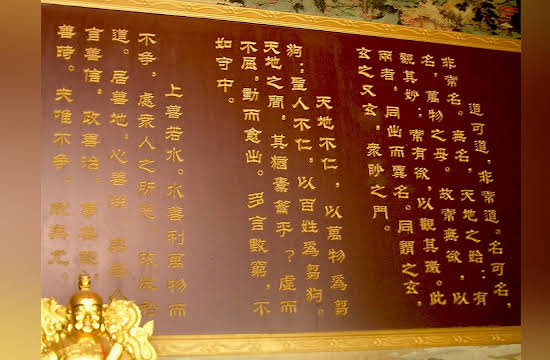 道可道,非常道。名可名,
非常名。無名,天地之始;有
名,萬物之母。故常無欲,以
觀其妙;常有欲,以觀其徼。此
兩者,同出而異名。同謂之玄,
玄之又玄,衆眇之門。
天地不仁,以萬物爲芻
狗;聖人不仁,以百姓爲芻狗。
天地之間,其猶橐籥乎?虛而
不屈,動而愈出。多言數窮,不
如守中。
上善若水。水善利萬物而
不争,處衆人之所惡,故幾於
道。居善地,心善淵,與善
言善信,政善治,事善能,
善時。夫唯不争,故無尤。